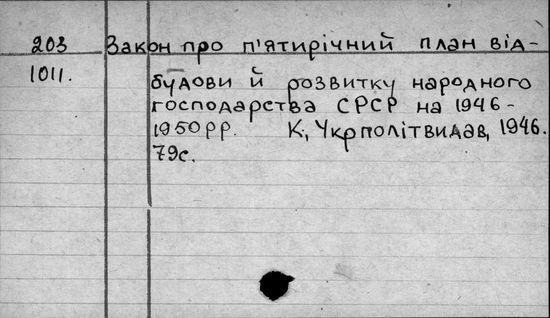 203 Закон про п'ятирічний план від-
1011. будови й розвитку народного
господарства СРСР на 1946-
1950рр. К., Укрполітвидав, 1946.
79с.